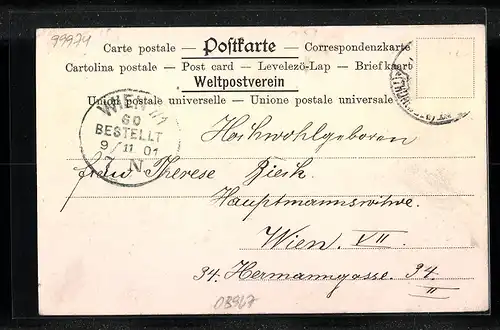 99974
Carte postale – Postkarte – Correspondenzkarte
Cartolina postale – Post card – Levelező-Lap – Briefkaart
Weltpostverein
Union postale universelle – Unione postale universale
WIEN 7/1
60
BESTELLT
9/11 01
7. N.
Hochwohlgeboren
Frau Therese
Hauptmannswitwe.
Wien. VII
34. Hermanngasse. 34
II
03967